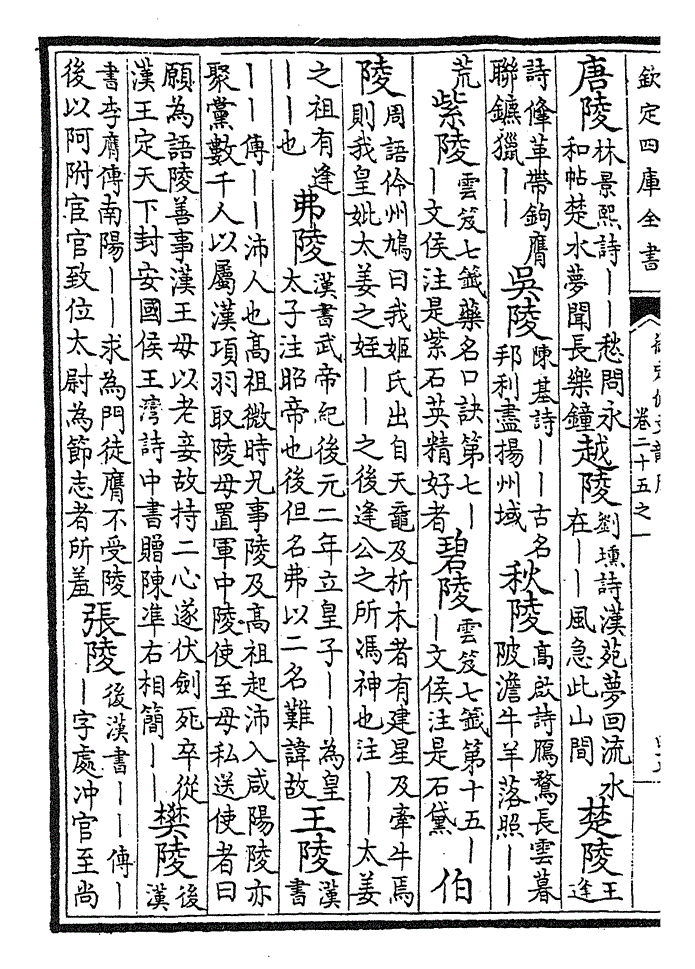 欽定四庫全書
卷二十五之一
唐陵林景熙詩——愁問永和帖楚水夢聞長樂鐘越陵劉壎詩漢苑夢回流水在——風急此山間楚陵王逢
詩鞗革帶鉤膺聯鑣獵——吳陵陳基詩——古名邦利盡揚州域秋陵高啟詩鴈鶩長雲暮陂澹牛羊落照——
荒紫陵雲笈七籤藥名口訣第七——文侯注是紫石英精好者碧陵雲笈七籤第十五——文侯注是石黛伯
陵周語伶州鳩曰我姬氏出自天黿及析木者有建星及牽牛焉則我皇妣太姜之姪——之後逢公之所馮神也注——太姜
之祖有逢——也弗陵漢書武帝紀後元二年立皇子——為皇太子注昭帝也後但名弗以二名難諱故王陵漢書
——傳——沛人也高祖微時兄事陵及高祖起沛入咸陽陵亦聚黨數千人以屬漢項羽取陵母置軍中陵使至母私送使者曰
願為語陵善事漢王母以老妾故持二心遂伏劍死卒從漢王定天下封安國侯王灣詩中書贈陳準右相簡——樊陵後漢
書李膺傳南陽——求為門徒膺不受陵後以阿附宦官致位太尉為節志者所羞張陵後漢書——傳——字處冲官至尚